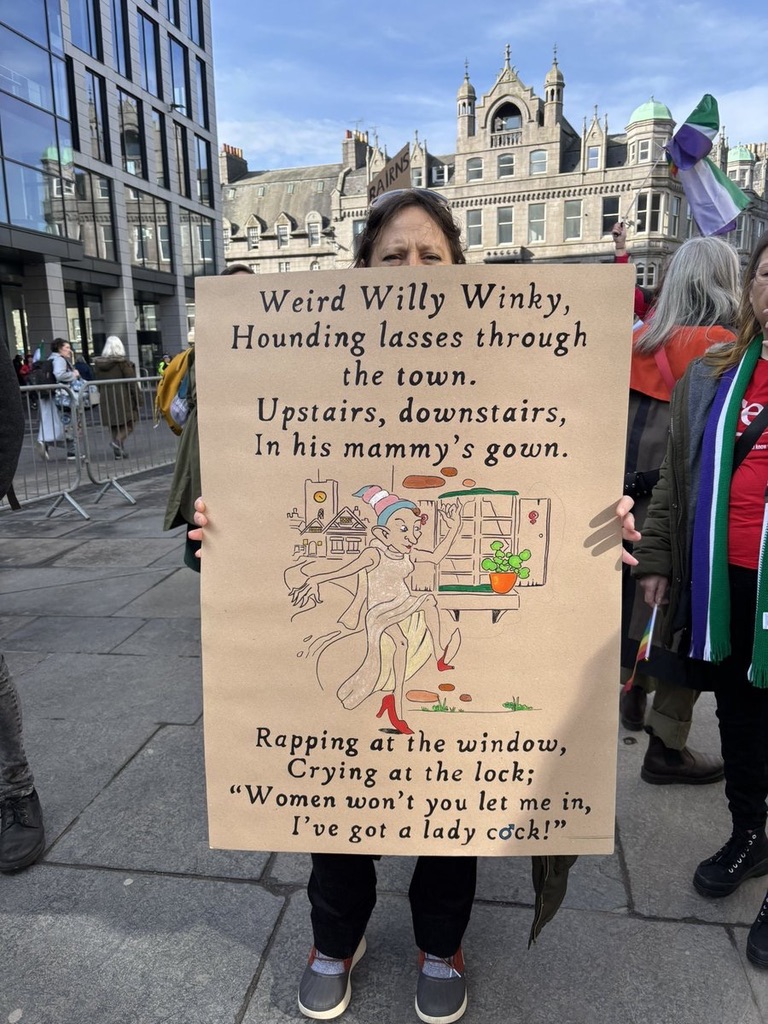 BAIRNS
Weird Willy Winky,
Hounding lasses through
the town.
Upstairs, downstairs,
In his mammy's gown.
Rapping at the window,
Crying at the lock;
"Women won't you let me in,
I've got a lady cock!"